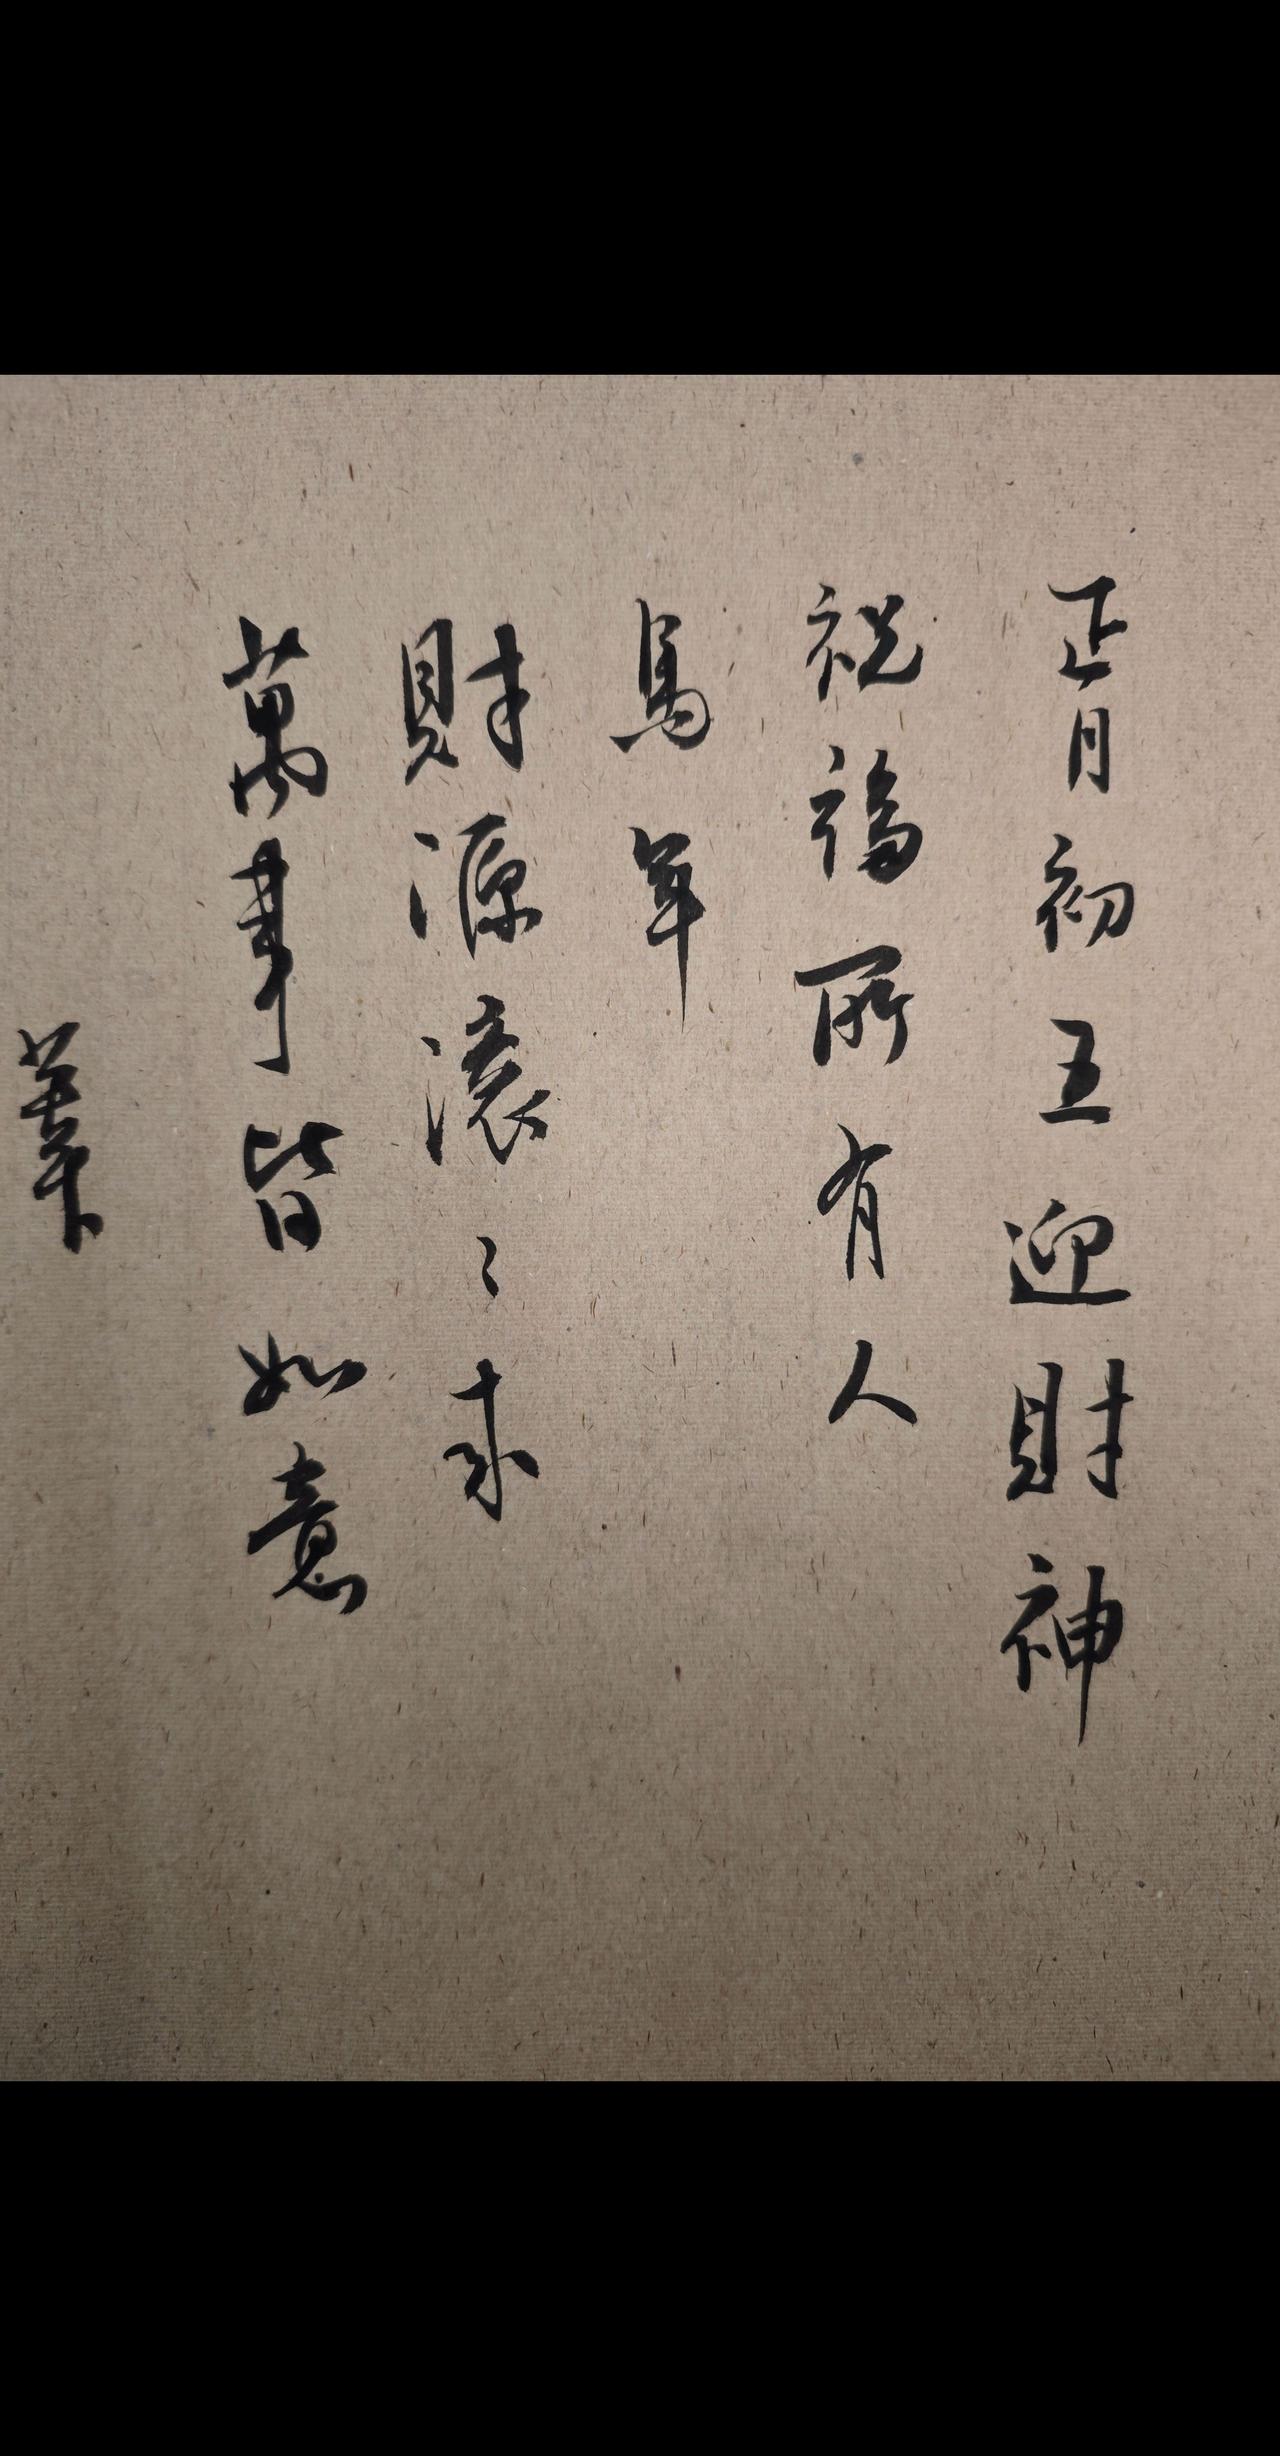 正月初五迎財神
祝福所有人
馬年
財源滾〻來
萬事皆如意